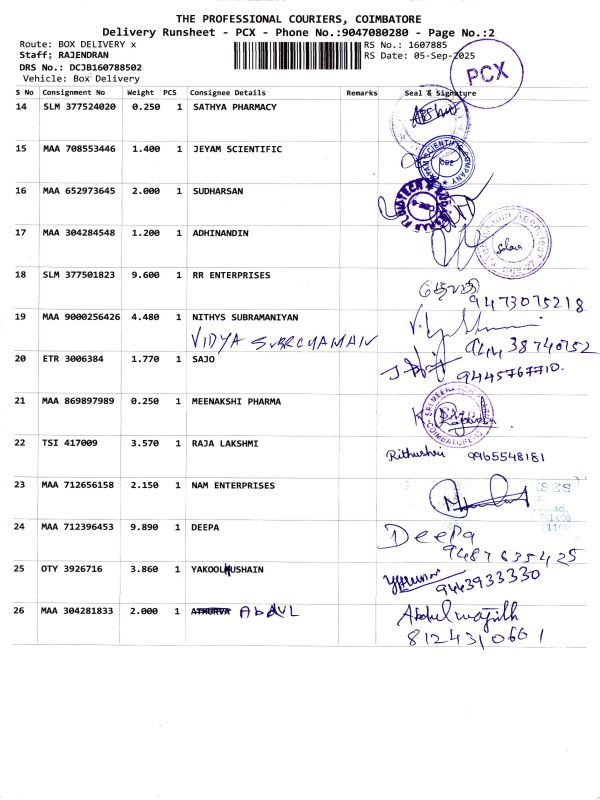 THE PROFESSIONAL COURIERS, COIMBATORE
Delivery Runsheet - PCX - Phone No.:9047080280 - Page No.:2
Route: BOX DELIVERY x
RS No.: 1607885
Staff: RAJENDRAN
RS Date: 05-Sep-2025
DRS No.: DCJB160788502
Vehicle: Box Delivery
PCX
S No Consignment No Weight PCS Consignee Details Remarks Seal & Signature
14 SLM 377524020 0.250 1 SATHYA PHARMACY
15 MAA 708553446 1.400 1 JEYAM SCIENTIFIC
16 MAA 652973645 2.000 1 SUDHARSAN
17 MAA 304284548 1.200 1 ADHINANDIN
18 SLM 377501823 9.600 1 RR ENTERPRISES
9473075218
19 MAA 9000256426 4.480 1 NITHYS SUBRAMANIYAN
VIDYA
20 ETR 3006384 1.770 1 SAJO
9445767710.
21 MAA 869897989 0.250 1 MEENAKSHI PHARMA
22 TSI 417009 3.570 1 RAJA LAKSHMI
Rithushri 9965548181
23 MAA 712656158 2.150 1 NAM ENTERPRISES
24 MAA 712396453 9.890 1 DEEPA
Deepa
9487635425
25 OTY 3926716 3.860 1 YAKOOLHUSHAIN
9443933330
26 MAA 304281833 2.000 1 ATHURVA AbdUL
8124310661